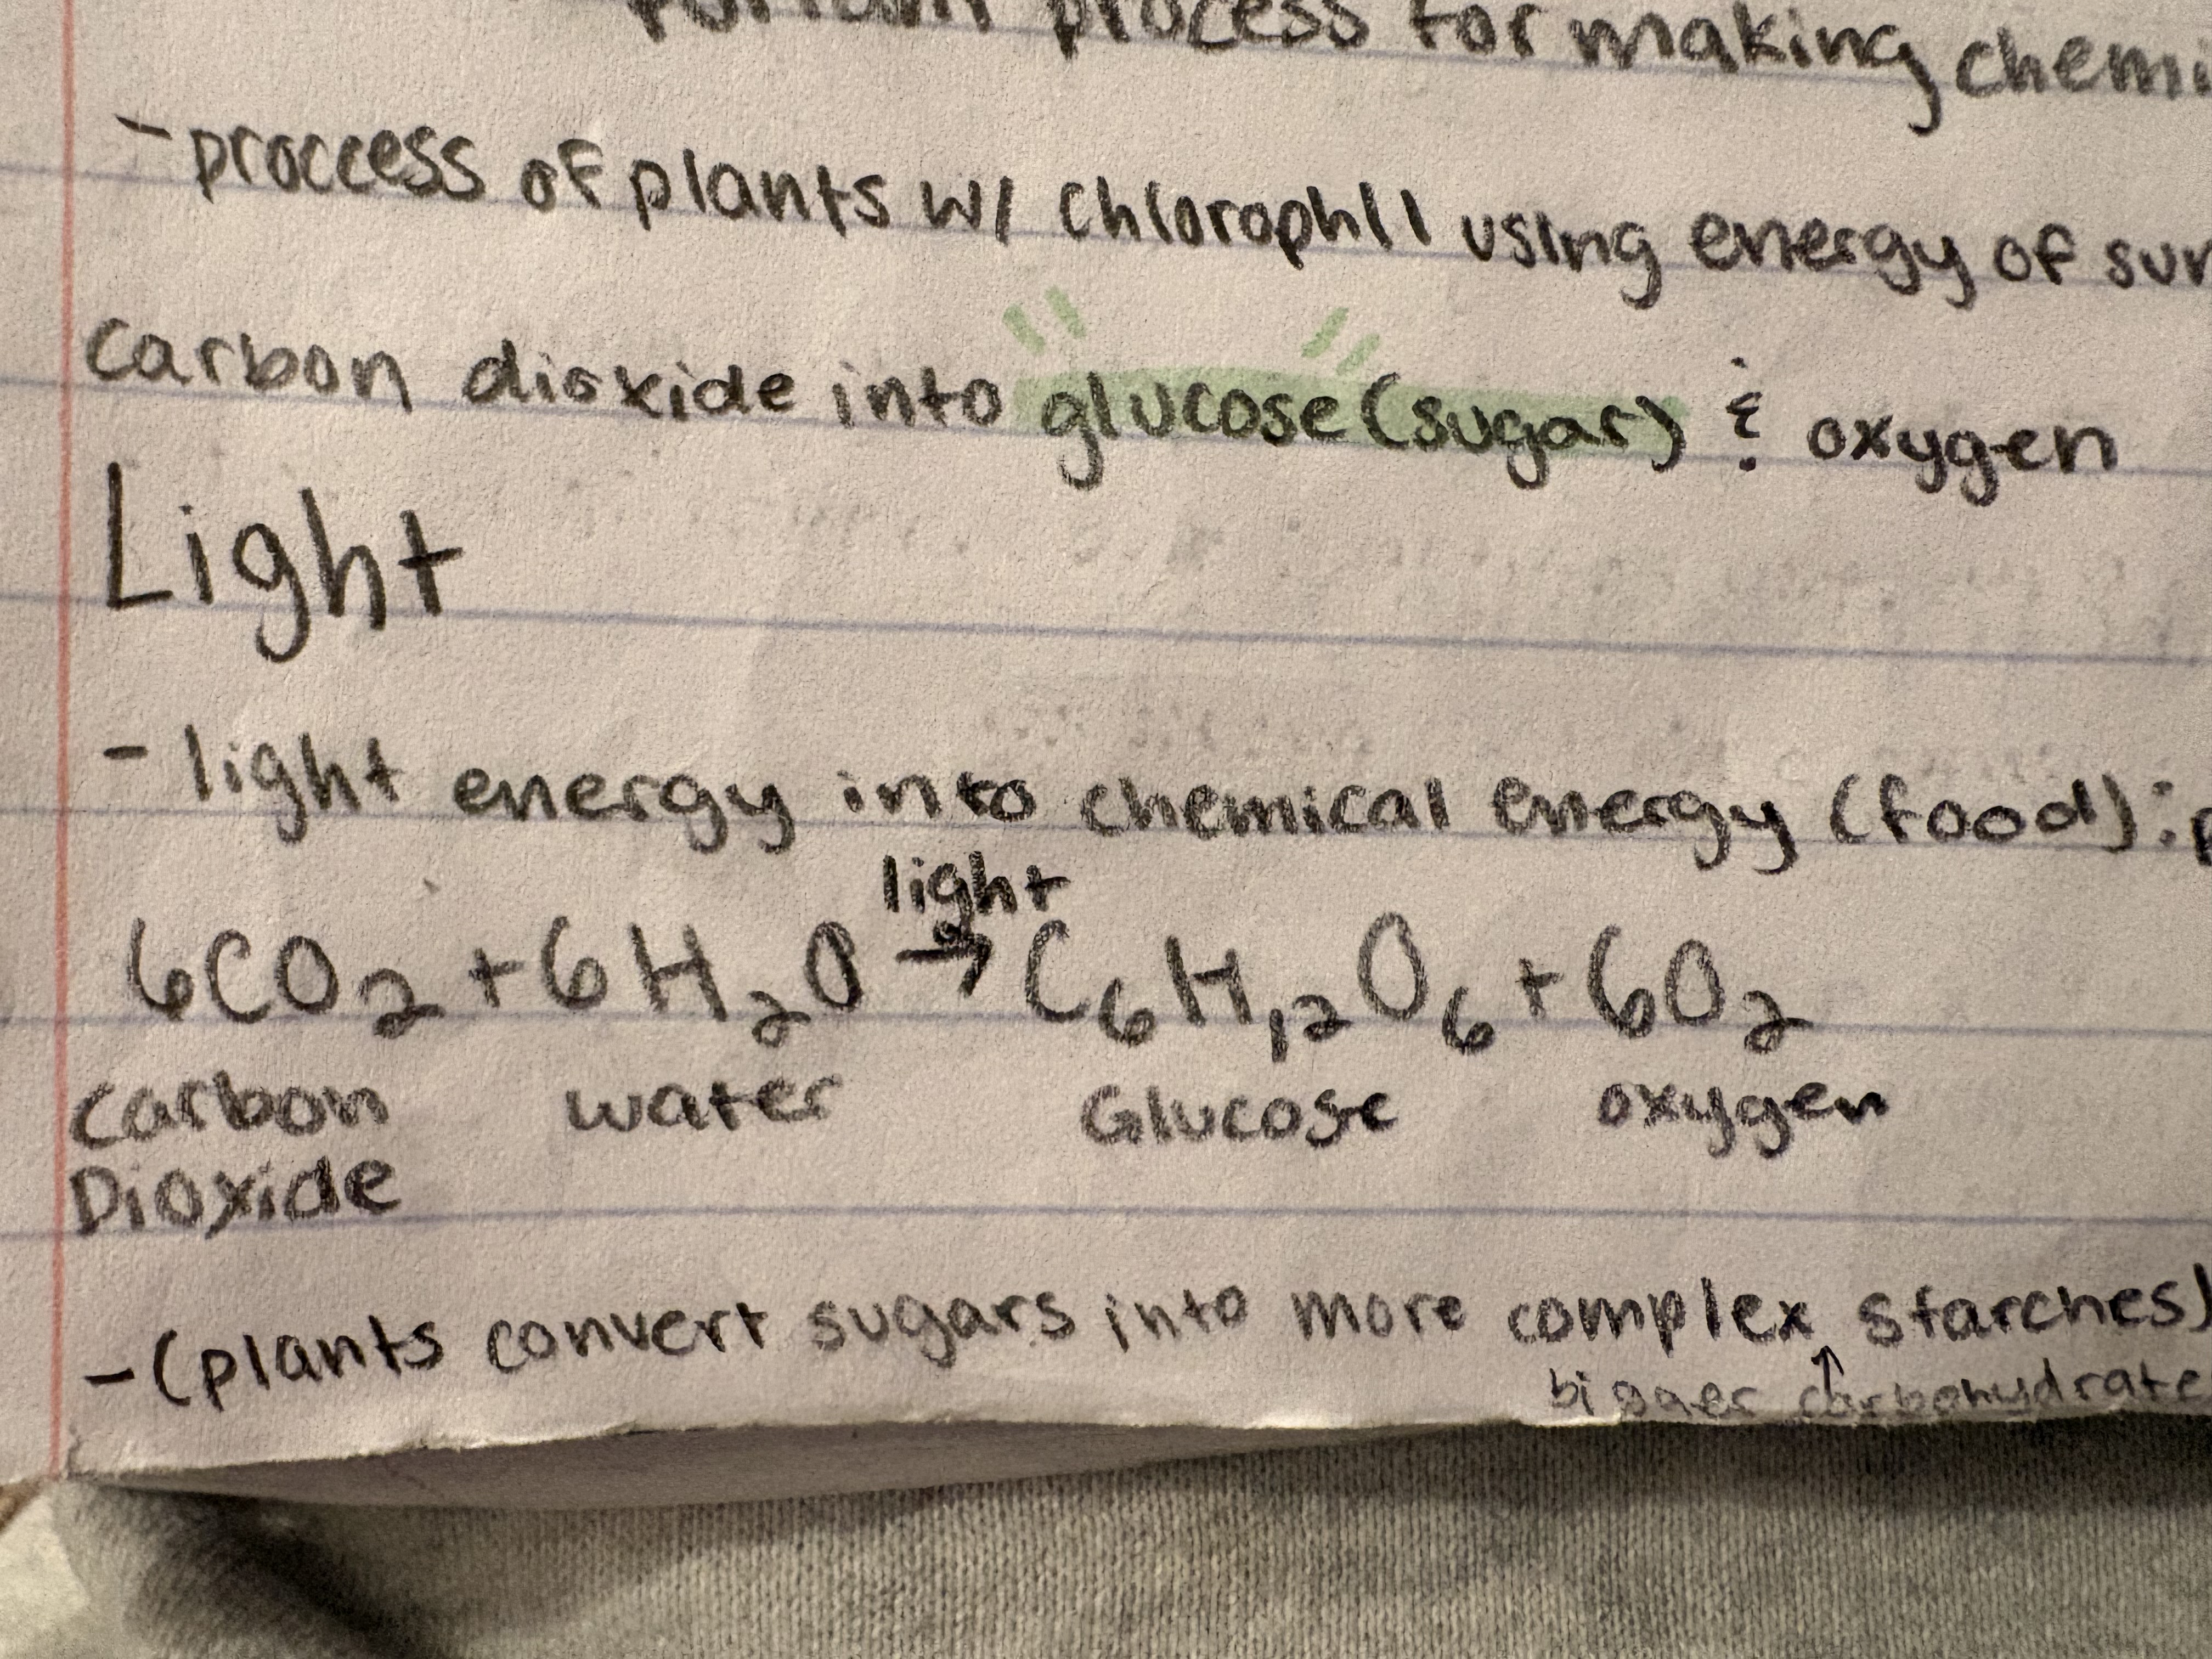 process for making chemi
- proccess of plants w/ chlorophll using energy of sun
carbon dioxide into glucose (sugar) & oxygen
Light
- light energy into chemical energy (food):
light
6CO₂ + 6H₂O → C₆H₁₂O₆ + 6O₂
carbon water Glucose oxygen
Dioxide
- (plants convert sugars into more complex starches)
bigger carbohydrate